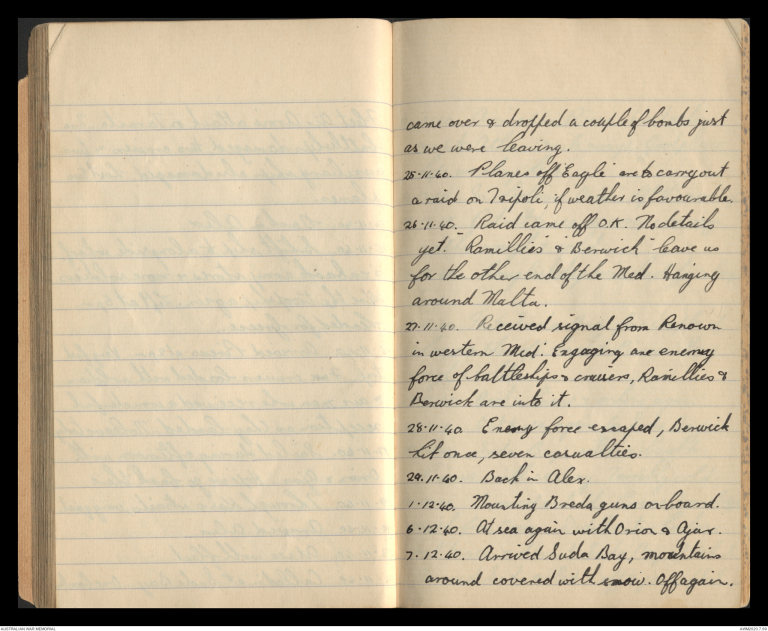 came over & dropped a couple of bombs just
as we were leaving.
25·11·40. Planes off "Eagle" are to carry out
a raid on Tripoli, if weather is favourable.
26·11·40. Raid came off O.K. No details
yet. "Ramillies" & "Berwick" leave us
for the other end of the Med. Hanging
around Malta.
27·11·40. Received signal from Renown
in western Med. Engaging are enemy
force of battleships & cruisers, Ramillies &
Berwick are into it.
28·11·40 Enemy force escaped, Berwick
hit once, seven casualties.
29·11·40. Back in Alex.
1·12·40. Mounting Breda guns onboard.
6·12·40. At sea again with Orion & Ajax.
7·12·40. Arrived Suda Bay, mountains
around covered with snow. Off again.
AUSTRALIAN WAR MEMORIAL